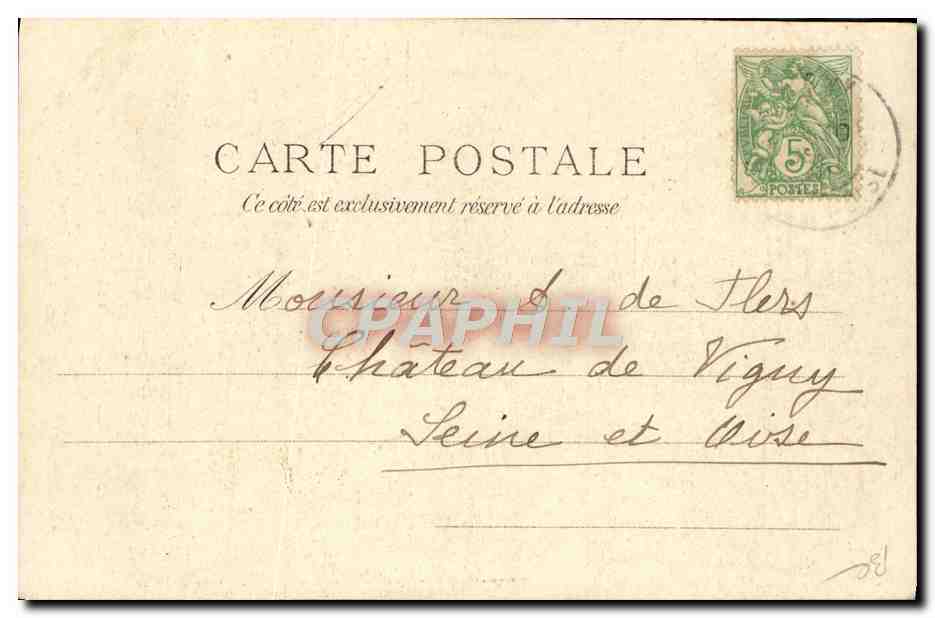 CARTE POSTALE
Ce côté est exclusivement réservé à l'adresse
5c
POSTES
Monsieur de Flers
CPAPHIL
Château de Vigny
Seine et Oise